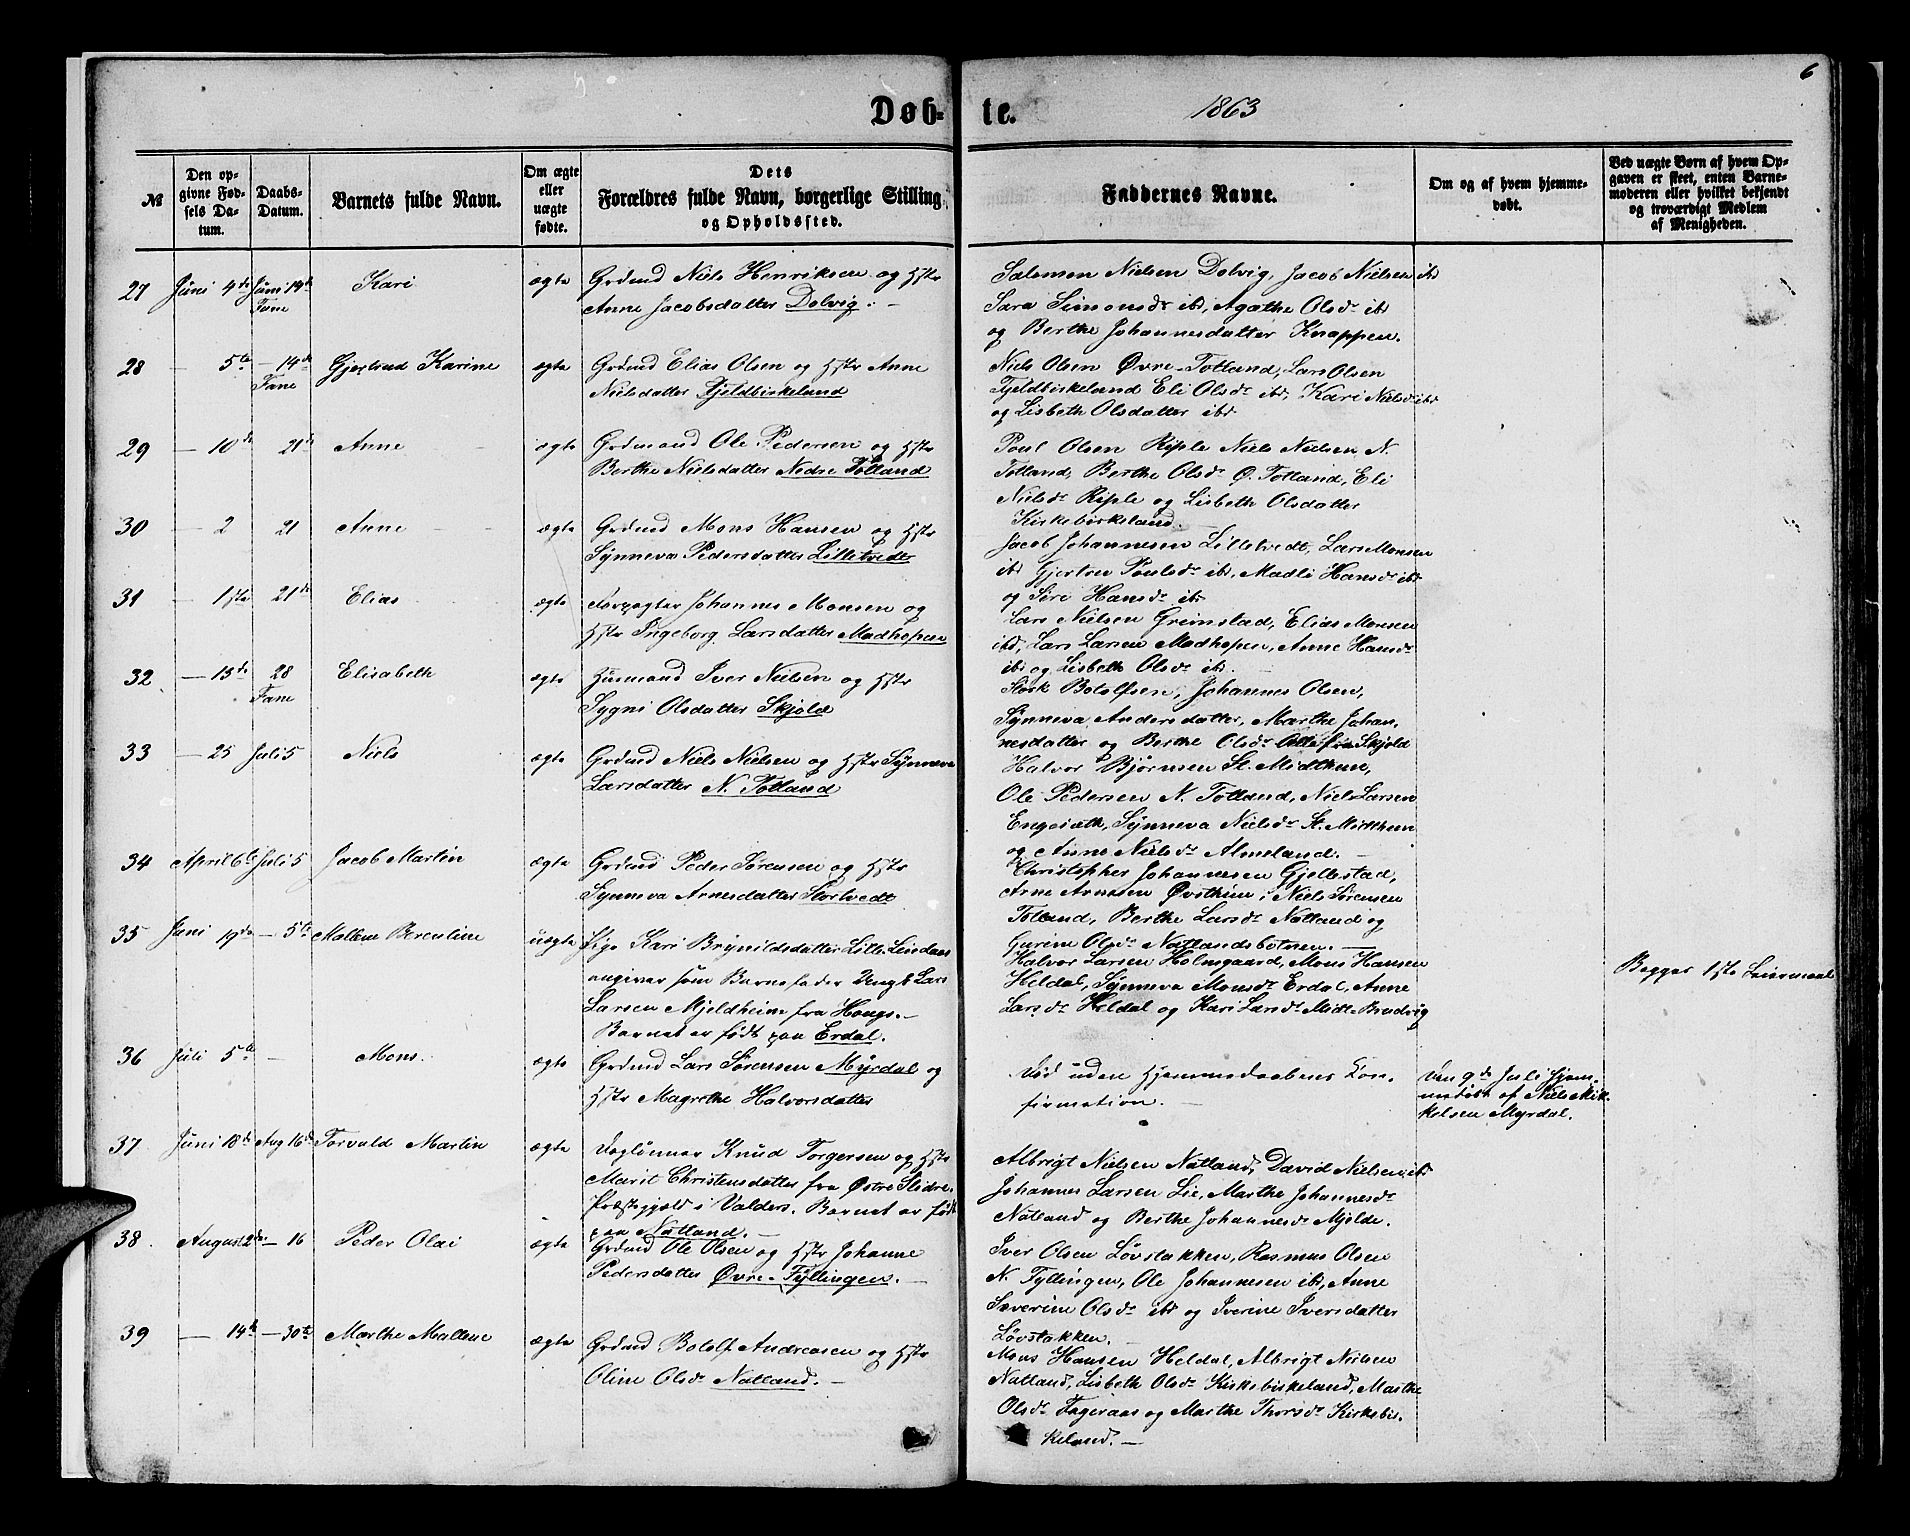 6
Døb- te. 1863
№
Den opgivne Fødsels Datum.
Daabs-Datum.
Barnets fulde Navn.
Om ægte eller uægte fødte.
Dets Forældres fulde Navn, borgerlige Stilling og Opholdssted.
Faddernes Navne.
Om og af hvem hjemmedøbt.
Ved uægte Børn af hvem Opgaven er skeet, enten Barnemoderen eller hvilket bekjendt og troværdigt Medlem af Menigheden.
27 Juni 4de Juni 14de Fane Kari ægte Grdmd Niels Henriksen og Hstr
Anne Jacobsdatter Dolvig. —
Salomon Nielsen Dolvig, Jacob Nielsen ibd
Sara Simonsdr ibd, Agathe Olsdr ibd
og Berthe Johannesdatter Knappen.
28 — 5te — 14de Fane Gjertrud Karine ægte Grdmd Elias Olsen og Hstr Anne
Nielsdatter Fjeldbirkeland
Niels Olsen Øvre-Totland, Lars Olsen
Fjeldbirkeland Eli Olsdr ibd, Kari Nielsdr ibd
og Lisbeth Olsdatter ibd
29 — 10de 21de Anne ægte Grdmand Ole Pedersen og Hstr
Berthe Nielsdatter Nedre Totland
Poul Olsen Riple Niels Nielsen N.
Totland, Berthe Olsdr Ø. Totland, Eli
Nielsdr Riple og Lisbeth Olsdatter
Kirkebirkeland.
30 — 2 21 Anne ægte Grdmd Mons Hansen og Hstr
Synneva Pedersdatter Lilletvedt
Jacob Johannesen Lilletvedt, Lars Monsen
ibd Gjertru Poulsdr ibd, Madli Hansdr ibd
og Siri Hansdr ibd
31 — 1ste 21de Elias ægte Forpagter Johannes Monsen og
Hstr Ingeborg Larsdatter Madhopen
Lars Nielsen Grimstad, Elias Monsen
ibd, Lars Larsen Madhopen, Anne Hansdr
ibd og Lisbeth Olsdr ibd. —
32 — 13de 28 Fane Elisabeth ægte Husmand Iver Nielsen og Hstr
Sygni Olsdatter Skjold
Stork Botolfsen, Johannes Olsen,
Synneva Andersdatter, Marthe Johan,
nesdatter og Berthe Olsdr Alle fra Skjold
33 — 25 Juli 5 Niels ægte Grdmd Niels Nielsen og Hstr Synneva
Larsdatter N. Totland
Halvor Bjørnsen St. Midthun,
Ole Pedersen N. Totland, Niels Larsen
Synneva Nielsdr St. Midthun
og Anne Nielsdr Almeland. —
34 April 6te Juli 5 Jacob Martin ægte Grdmd Peder Sørensen og Hstr
Synneva Arnesdatter Stortvedt
Christopher Johannesen Gjellestad,
Arne Arnesen Øvsthun, Niels Sørensen
Totland, Berthe Larsdr Natland og
Gurine Olsdr Natlandsbotnen. —
35 Juni 19de — 5te Mallene Berentine uægte Pige Kari Brynildsdatter Lille Lindaas
angiver som Barnefader Ungk Lars
Larsen Mjeldheim fra Hougs. —
Barnet er født paa Erdal.
Halvor Larsen Holmgaard, Mons Hansen
Heldal, Synneva Monsdr Erdal, Anne
Larsdr Heldal og Kari Larsdr Midt-Brudvig
Begges 1ste Leiermaal
36 Juli 5te — Mons. ægte Grdmd Lars Sørensen Myrdal og
Hstr Magrethe Halvorsdatter
Død uden Hjemmedaabens Con,
firmation. —
Den 9de Juli Hjem,
medøbt af Niels Mik,
kelsen Myrdal.
37 Juni 18de Aug 16de Torvald Martin ægte Daglønner Knud Torgersen og Hstr
Marit Christensdatter fra Østre Slidre
Præstegjeld i Valders. Barnet er født
paa Natland. —
Albrigt Nielsen Natland, David Nielsen ibd
Johannes Larsen Lie, Marthe Johannesdr
Natland og Berthe Johannesdr Mjelde.
38 August 2den — 16 Peder Olai ægte Grdmd Ole Olsen og Hstr Johanne
Pedersdatter Øvre-Fyllingen. —
Iver Olsen Løvstakken, Rasmus Olsen
N. Fyllingen, Ole Johannesen ibd, Anne
Severine Olsdr ibd og Iverine Iversdatter
Løvstakken.
39 — 14de — 30te Marthe Mallene ægte Grdmd Botolf Andreasen og Hstr
Oline Olsdr Natland. —
Mons Hansen Heldal, Albrigt Nielsen
Natland, Lisbeth Olsdr Kirkebirkeland, Marthe
Olsdr Fageraas og Marthe Thorsdr Kirkebir,
keland. —